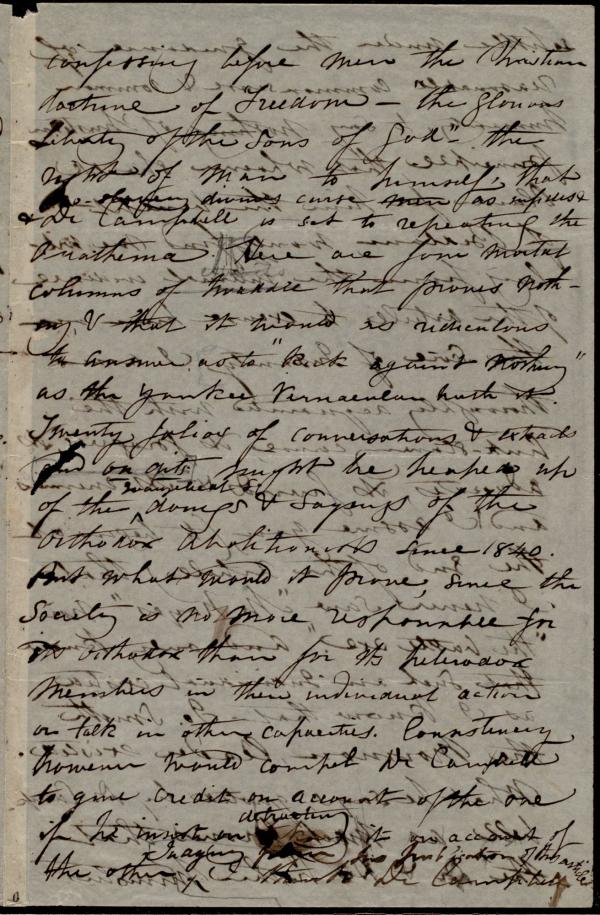 confessing before men the Christian
doctrine of Freedom - the glorious
Liberty of the Sons of God" - the
right of Man to himself, that
pro-slavery divines curse men as infidels
& Dr Campbell is set to repeating the
Anathema. Here are four mortal
columns of twaddle that proves noth-
ing, & that it would as ridiculous
to answer as to "kick against nothing"
as the Yankee Vernacular hath it.
Twenty folios of conversations & extracts
and on dits might be heaped up
of the doings & sayings of the
Orthodox Abolitionists since 1840.
But what would it prove, since the
Society is no more responsible for
its orthodox than for its heterodox
members in their individual action
or talk in other capacities. Consistency
however would compel Dr Campbell
to give credit on account of the one
if he insist on detracting it on account of
the other. Dr Campbell